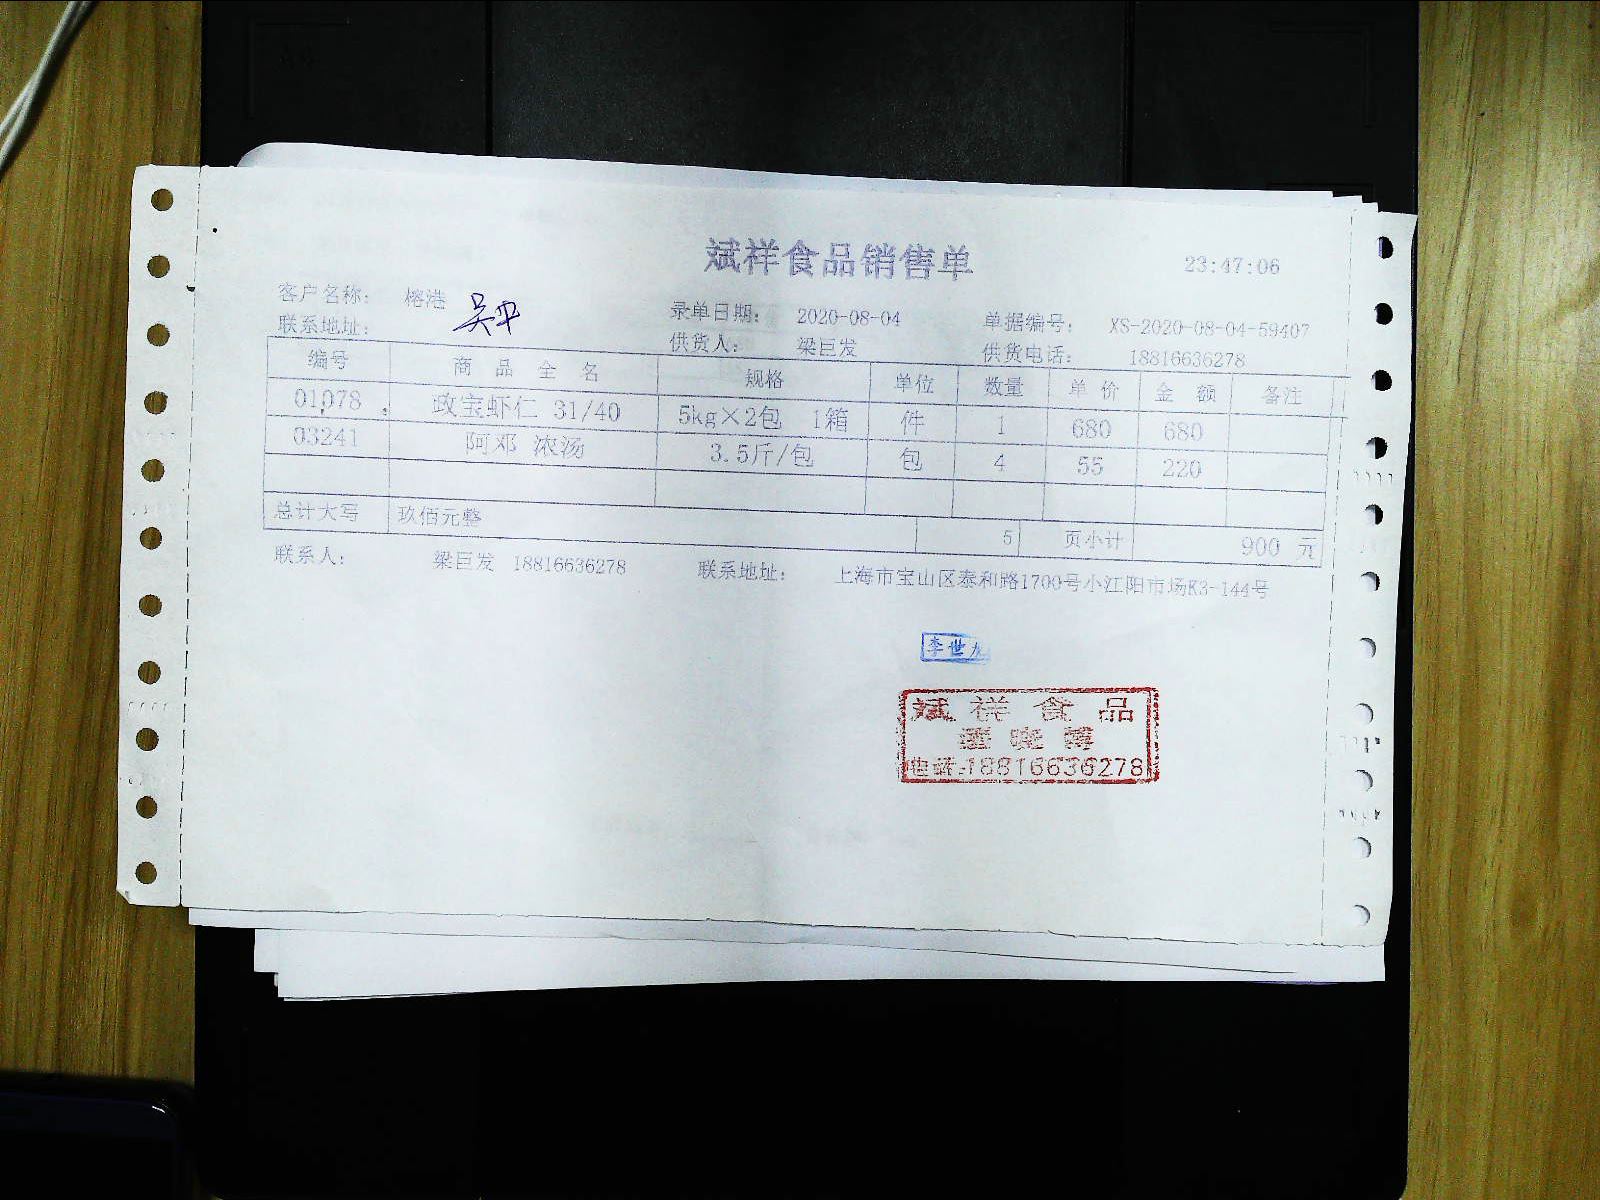 斌祥食品销售单 23:47:06
客户名称: 榕港 吴平 录单日期: 2020-08-04 单据编号: XS-2020-08-04-59407
联系地址: 供货人: 梁巨发 供货电话: 18816636278
编号 商品全名 规格 单位 数量 单价 金额 备注
01078 政宝虾仁 31/40 5kg×2包 1箱 件 1 680 680
03241 阿邓 浓汤 3.5斤/包 包 4 55 220
总计大写 玖佰元整 5 页小计 900 元
联系人: 梁巨发 18816636278 联系地址: 上海市宝山区泰和路1700号小江阳市场K3-144号
李世龙
斌祥食品
电话:18816636278